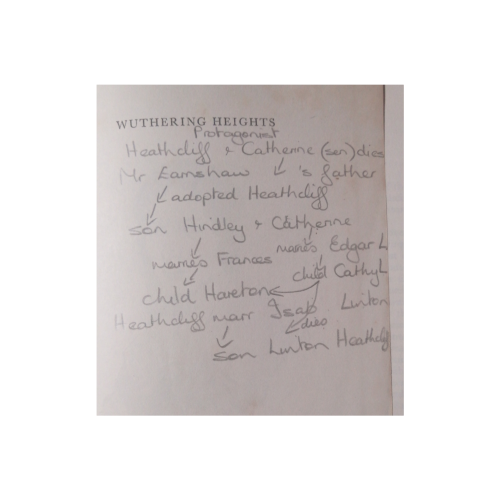 WUTHERING HEIGHTS
Protagonist
Heathcliff & Catherine (sen) dies
Mr Earnshaw 's father
adopted Heathcliff
son Hindley & Catherine
marries Edgar L
marries Frances
child Cathy L
child Hareton
Heathcliff marr Isab Linton
dies
son Linton Heathclif